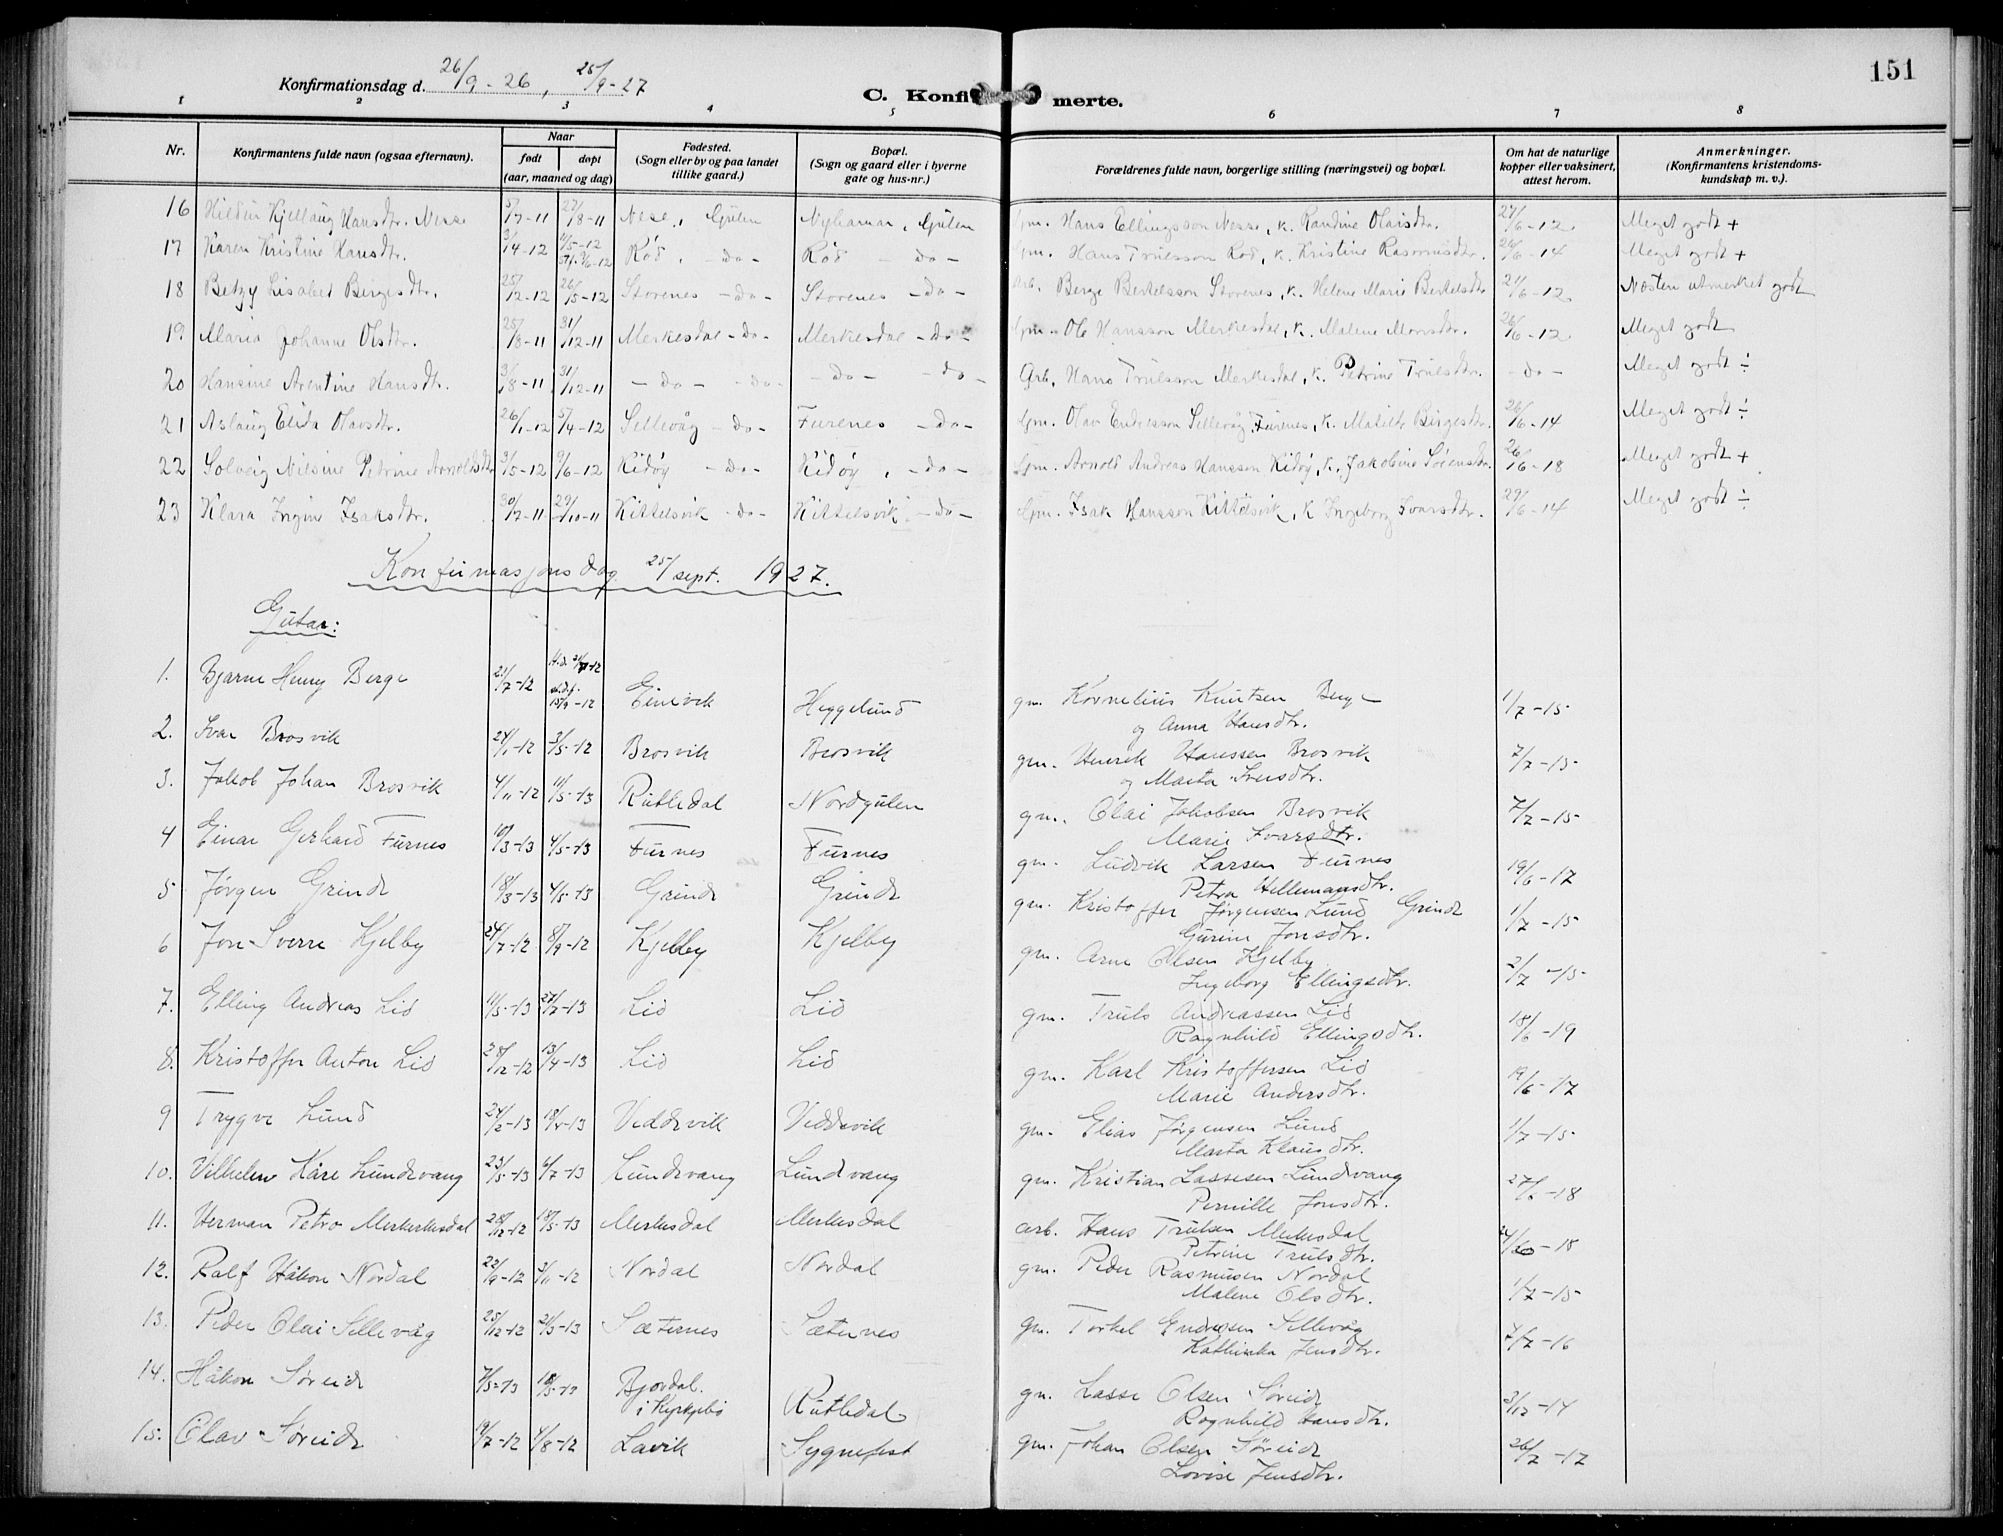 151
Konfirmationsdag d. 26/9-26, 25/9-27
C. Konfirmerte.
1 2 3 4 5 6 7 8
Nr. Konfirmantens fulde navn (ogsaa efternavn). Naar født døpt (aar, maaned og dag) Fødested. (Sogn eller by og paa landet tillike gaard.) Bopæl. (Sogn og gaard eller i byerne gate og hus-nr.) Forældrenes fulde navn, borgerlige stilling (næringsvei) og bopæl. Om hat de naturlige kopper eller vaksinert, attest herom. Anmerkninger. (Konfirmantens kristendoms-kundskap m. v.).
16 Hildur Kjellaug Hansdtr. Nesse 5/7-11 27/8-11 Nese, Gulen Nyhamar, Gulen Gm. Hans Ellingsson Nesse, k. Randine Olaisdtr. 27/6-12 Meget godt +
17 Karen Kristine Hansdtr. 3/4-12 Rød, -do- Rød -do- Gm. Hans Trulsson Rød, k. Kristine Rasmusdtr. 26/6-14 Meget godt +
18 Betzy Lisabet Bergesdtr. 25/2-12 26/5-12 Storenes -do- Storenes -do- Arb. Berge Bertelsson Storenes, k. Helene Marie Bertelsdtr 21/6-12 Næsten utmerket godt
19 Maria Johanne Olsdtr. 25/8-11 31/12-11 Merkesdal -do- Merkesdal -do- Gm. Ole Hansson Merkesdal, k. Malene Monsdtr. 26/6-12 Meget godt
20 Hansine Arentine Hansdtr. 3/8-11 31/12-11 -do- -do- -do- -do- Arb. Hans Trulsson Merkesdal, k. Petrine Trulsdtr. -do- Meget godt ÷
21 Aslaug Elida Olavsdtr. 26/1-12 5/4-12 Sellevåg -do- Furenes -do- Gm. Olav Endresson Sellevåg, Furenes, k. Matilde Birgesdtr. 26/6-14 Meget godt ÷
22 Solveig Nilsine Petrine Arnoldsdtr 3/5-12 9/6-12 Kidøy -do- Kidøy, -do- Gm. Arnold Andreas Hansson Kidøy, k. Jakobine Sørensdtr. 26/6-18 Meget godt +
23 Klara Ingine Isaksdtr. 30/7-11 29/10-11 Kittelsvik -do- Kittelsvik -do- Gm. Isak Hansson Kittelsvik, k Ingeborg Ivarsdtr. 29/6-14 Meget godt ÷
Konfirmasjonsdag 25/ sept. 1927.
Gutar:
1. Bjarne Henry Berge 21/7-12 15/9-12 Einevik Heggelund gm. Kornelius Knutsen Berge 1/7-15
og Anna Hansdtr.
2. Ivar Brosvik 24/1-12 3/5-12 Brosvik Brosvik gm. Henrik Hanssen Brosvik 7/7-15
og Marta Iversdtr.
3. Jakob Johan Brosvik 4/11-12 11/5-13 Rutledal Nordgulen gm. Olai Jakobsen Brosvik 7/7-15
Marie Ivarsdtr.
4 Einar Gerhard Furnes 10/3-13 4/5-13 Furnes Furnes gm. Ludvik Larsen Furnes 19/6-17
Petra Hellemansdtr.
5 Jørgen Grinde 18/3-13 4/5-13 Grinde Grinde gm. Kristoffer Jørgensen Lund Grinde 1/7-15
Gurine Jonsdtr.
6 Jon Sverre Kjelby 24/7-12 8/9-12 Kjelby Kjelby gm. Arne Olsen Kjelby 2/7-15
Ingeborg Ellingsdtr.
7. Elling Andreas Lid 11/5-13 27/7-13 Lid Lid gm. Truls Andreassen Lid 18/6-19
Ragnhild Ellingsdtr.
8. Kristoffer Anton Lid 28/12-12 13/4-13 Lid Lid gm. Karl Kristoffersen Lid 19/6-17
Marie Andersdtr.
9 Trygve Lund 24/2-13 Veddevik Veddevik gm. Elias Jørgensen Lund 1/7-15
Marta Klausdtr.
10. Vilhelm Kåre Lundevang 23/5-13 6/7-13 Lundevang Lundevang gm. Kristian Lassesen Lundevang 27/6-18
Pernille Jonsdtr.
11. Herman Petro Merkesdal 28/12-12 18/5-13 Merkesdal Merkesdal arb. Hans Trulsen Merkesdal
Petrine Trulsdtr.
12. Ralf Håkon Nordal 22/9-12 3/11-12 Nordal Nordal gm. Peder Rasmussen Nordal 1/7-15
Malene Olsdtr.
13. Peder Olai Sellevåg 25/12-12 Sæternes Sæternes gm. Torkel Endresen Sellevåg 7/7-16
Kathinka Jensdtr.
14. Håkon Søreide 7/5-13 Bjordal. i Kyrkjebø Rutledal gm. Lasse Olsen Søreide 3/12-14
Ragnhild Hansdtr.
15. Olav Søreide 19/7-12 4/8-12 Lavik Sygnefest gm. Johan Olsen Søreide 26/7-17
Lovise Jensdtr.